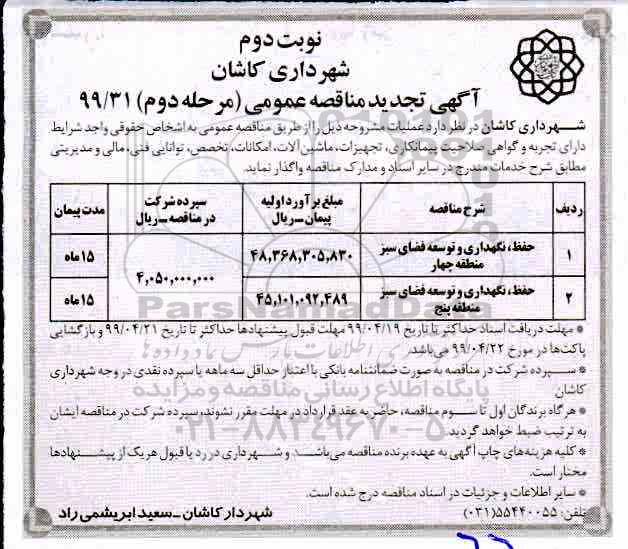 نوبت دوم
شهرداری کاشان
آگهی تجدید مناقصه عمومی (مرحله دوم) ۹۹/۳۱
شهرداری کاشان در نظر دارد عملیات مشروحه ذیل را از طریق مناقصه عمومی به اشخاص حقوقی واجد شرایط
دارای تجربه و گواهی صلاحیت پیمانکاری، تجهیزات، ماشین آلات، امکانات، تخصص، توانایی فنی، مالی و مدیریتی
مطابق شرح خدمات مندرج در سایر اسناد و مدارک مناقصه واگذار نماید.
ردیف شرح مناقصه مبلغ برآورد اولیه پیمان-ریال سپرده شرکت در مناقصه-ریال مدت پیمان
۱ حفظ، نگهداری و توسعه فضای سبز منطقه چهار ۴۸,۳۶۸,۳۰۵,۸۳۰ ۴,۰۵۰,۰۰۰,۰۰۰ ۱۵ ماه
۲ حفظ، نگهداری و توسعه فضای سبز منطقه پنج ۴۵,۱۰۱,۰۹۲,۴۸۹ ۱۵ ماه
* مهلت دریافت اسناد حداکثر تا تاریخ ۹۹/۰۴/۱۹ مهلت قبول پیشنهادها حداکثر تا تاریخ ۹۹/۰۴/۲۱ و بازگشایی
پاکت‌ها در مورخ ۹۹/۰۴/۲۲ می‌باشد.
* سپرده شرکت در مناقصه به صورت ضمانتنامه بانکی با اعتبار حداقل سه ماهه یا سپرده نقدی در وجه شهرداری
کاشان
* هرگاه برندگان اول تا سوم مناقصه، حاضر به عقد قرارداد در مهلت مقرر نشوند، سپرده شرکت در مناقصه ایشان
به ترتیب ضبط خواهد گردید.
* کلیه هزینه‌های چاپ آگهی به عهده برنده مناقصه می‌باشد و شهرداری در رد یا قبول هر یک از پیشنهادها
مختار است.
* سایر اطلاعات و جزئیات در اسناد مناقصه درج شده است.
تلفن: ۵۵۴۴۰۰۵۵(۰۳۱)
شهردار کاشان-سعید ابریشمی راد
ParsNamadData
پایگاه اطلاع رسانی مناقصه و مزایده
۰۲۱-۸۸۳۴۹۶۷۰-۵